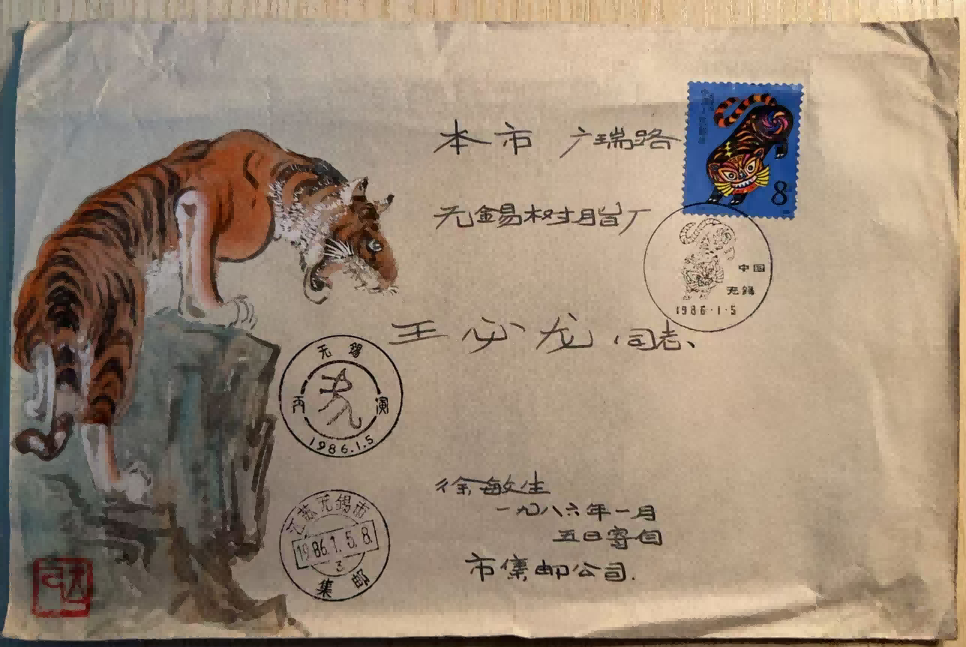 本市 广瑞路
8
无錫树脂厂
中国
无錫
1986·1·5
王必龙 同志、
无锡
丙 寅
1986.1.5
徐敏生
一九八六年一月
五日寄自
市集邮公司.
江苏无锡市
1986.1.5.8.
3
集 邮